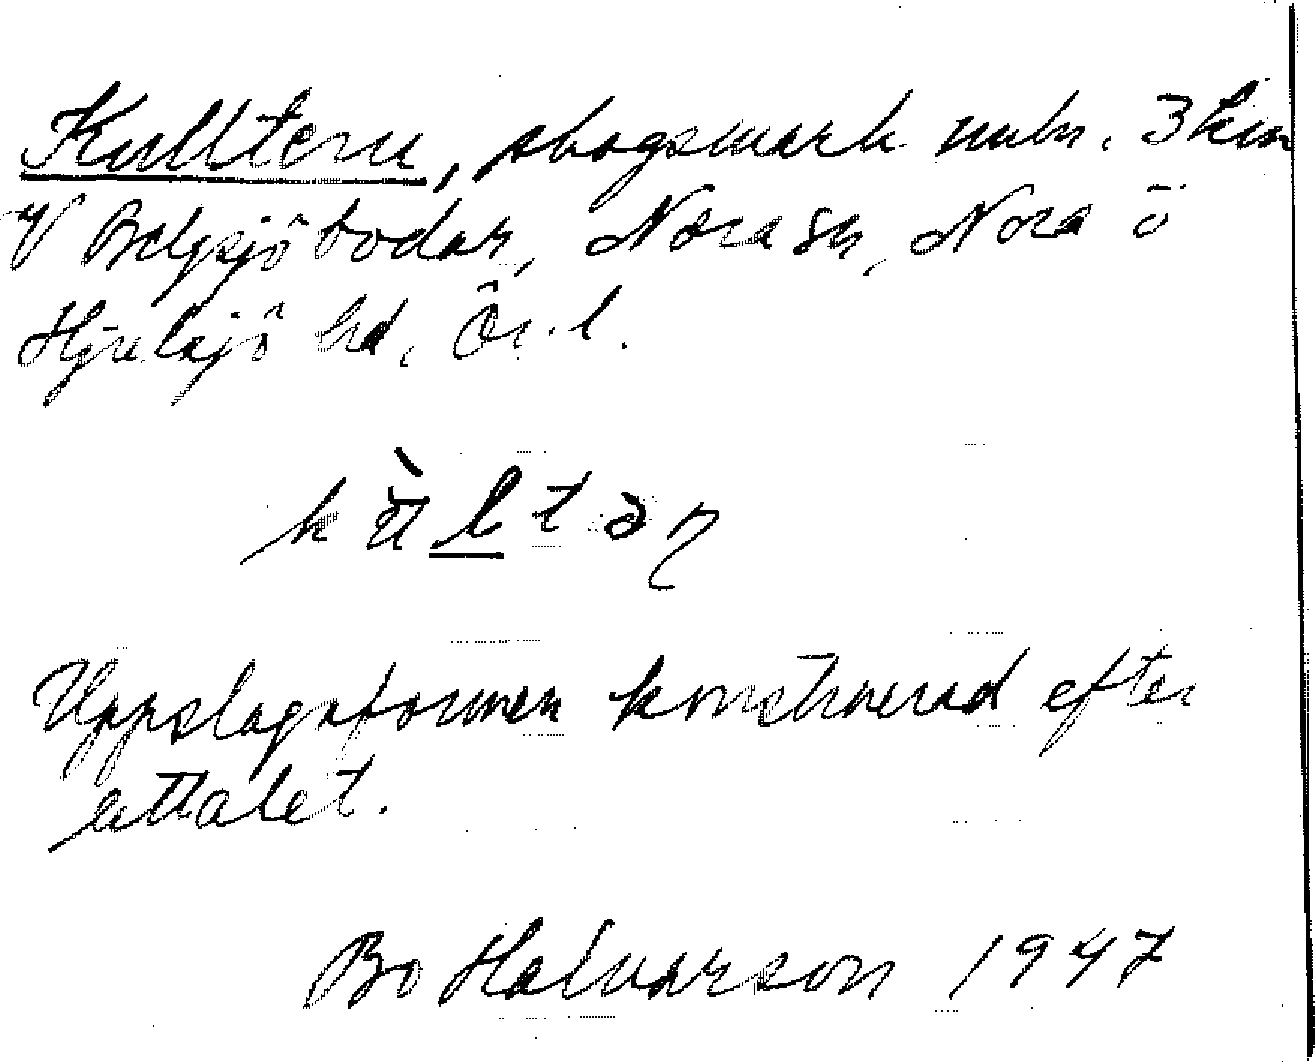 Kulltern, skogsmark umbr. 3 km
V Bälgsjöbodar, Nora sn, Nora o
Hjulsjö hd, Ör. l.
Uppslagsformen konstruerad efter
uttalet.
Bo Halvarson 1947